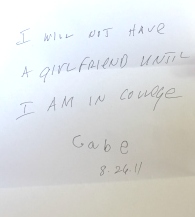 I WILL NOT HAVE
A GIRLFRIEND UNTIL
I AM IN COLLEGE
Gabe
8.26.11